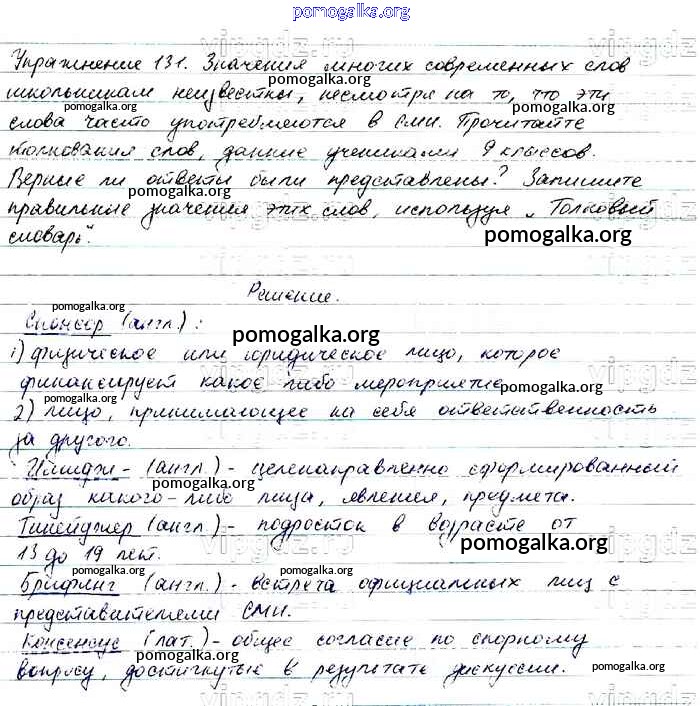 pomogalka.org
Упражнение 131. Значения многих современных слов
pomogalka.org
школьникам неизвестны, несмотря на то, что эти
pomogalka.org
слова часто употребляются в СМИ. Прочитайте
толкования слов, данные учениками 9 классов.
Верные ли ответы были представлены? Запишите
pomogalka.org
правильные значения этих слов, используя „Толковый
словарь".
pomogalka.org
Решение.
pomogalka.org
Спонсор (англ.):
pomogalka.org
1) физическое или юридическое лицо, которое
финансирует какое-либо мероприятие
pomogalka.org
2) лицо, принимающее на себя ответственность
за другого.
Имидж - (англ.) - целенаправленно сформированный
pomogalka.org
образ какого-либо лица, явления, предмета.
Тинейджер (англ.) - подросток в возрасте от
13 до 19 лет.
pomogalka.org
pomogalka.org
pomogalka.org
Брифинг (англ.) - встреча официальных лиц с
представителями СМИ.
pomogalka.org
Консенсус (лат.) - общее согласие по спорному
вопросу, достигнутые в результате дискуссии.
pomogalka.org
pomogalka.org
vipgdz.ru